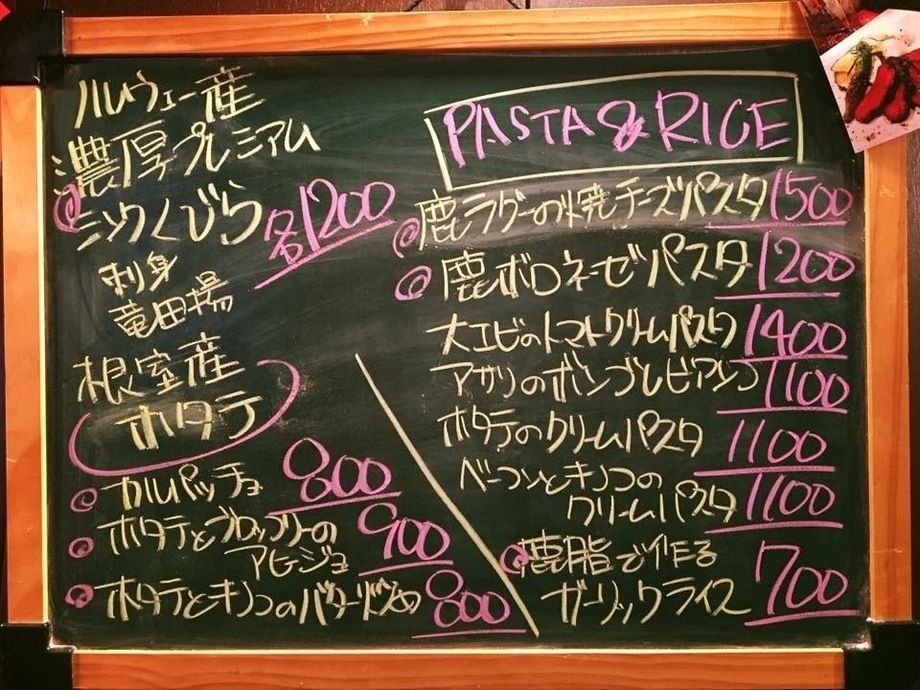 ノルウェー産
濃厚プレミアム
ミンクくじら 各1200
刺身
竜田揚
根室産
ホタテ
カルパッチョ 800
ホタテとブロッコリーの
アヒージョ 900
ホタテとキノコのバター炒め 800
PASTA & RICE
鹿ラグーの焼チーズパスタ 1500
鹿ボロネーゼパスタ 1200
大エビのトマトクリームパスタ 1400
アサリのボンゴレビアンコ 1100
ホタテのクリームパスタ 1100
ベーコンとキノコの
クリームパスタ 1100
鹿脂で作る
ガーリックライス 700